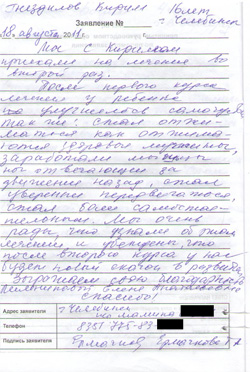 Гнездилов Кирилл 16 лет
г. Челябинск
Заявление №
18 августа 2011г.
Мы с Кириллом
приехали на лечение во
второй раз.
После первого курса
лечения у ребенка
так же стал
как отжима-
ются здоровые мужчины,
заработали мышцы
отвечающие за
движение назад, стал
увереннее передвигаться,
стал более самостоя-
тельным. Мы очень
рады, что узнали об этом
лечении и уверены, что
после второго курса у нас
будет новый скачок в развитии.
Выражаем свою благодарность
Спасибо!
Адрес заявителя г. Челябинск
Телефон 8351 775-83-
Подпись заявителя